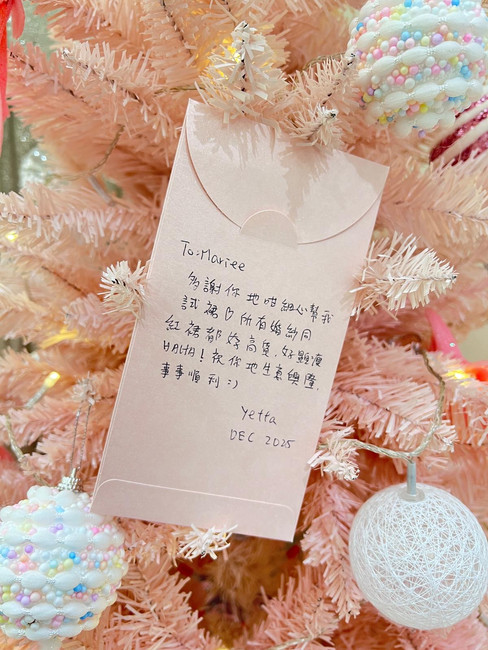 To: Mariee
多謝你地咁細心幫我
試裙 所有婚紗同
紅裙都好高質, 好顯瘦
HAHA! 祝你地生意興隆,
事事順利 :)
Yetta
DEC 2025